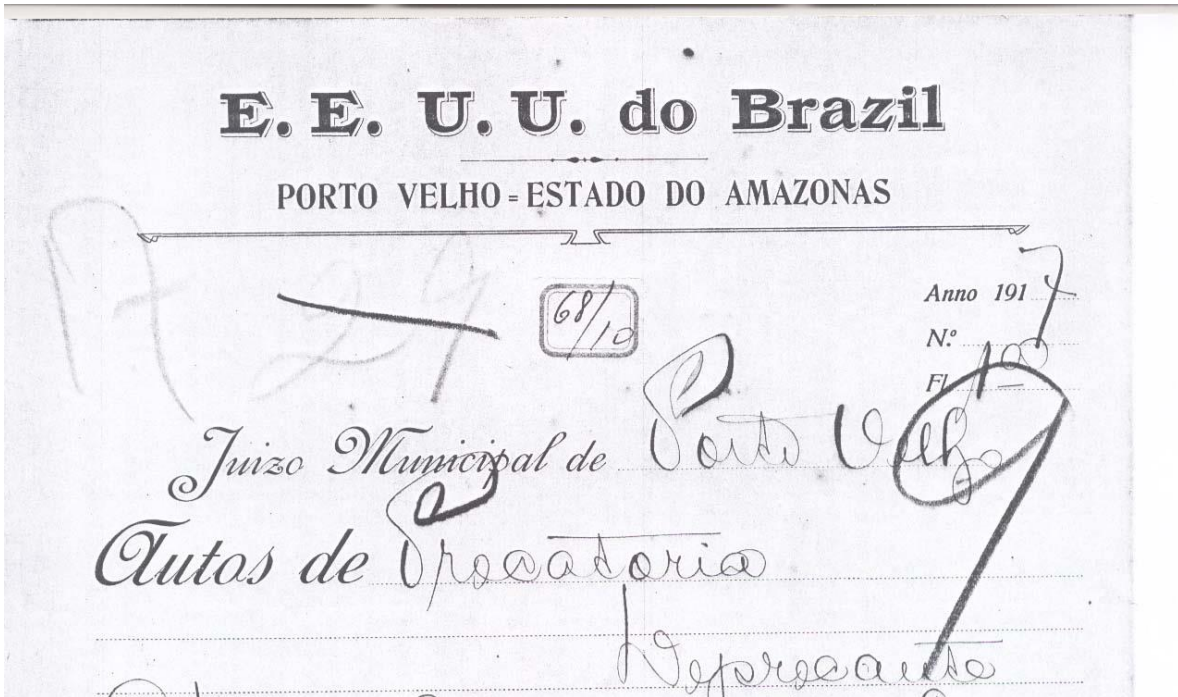 E. E. U. U. do Brazil
PORTO VELHO = ESTADO DO AMAZONAS
A 29
68/10
Anno 1917
N.º 100
Fl.
Juizo Municipal de Porto Velho
Autos de Precatoria
Deprecante